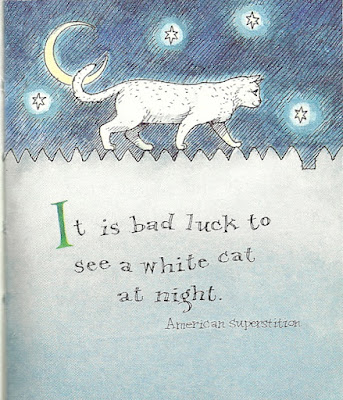 It is bad luck to
see a white cat
at night.
American Superstition